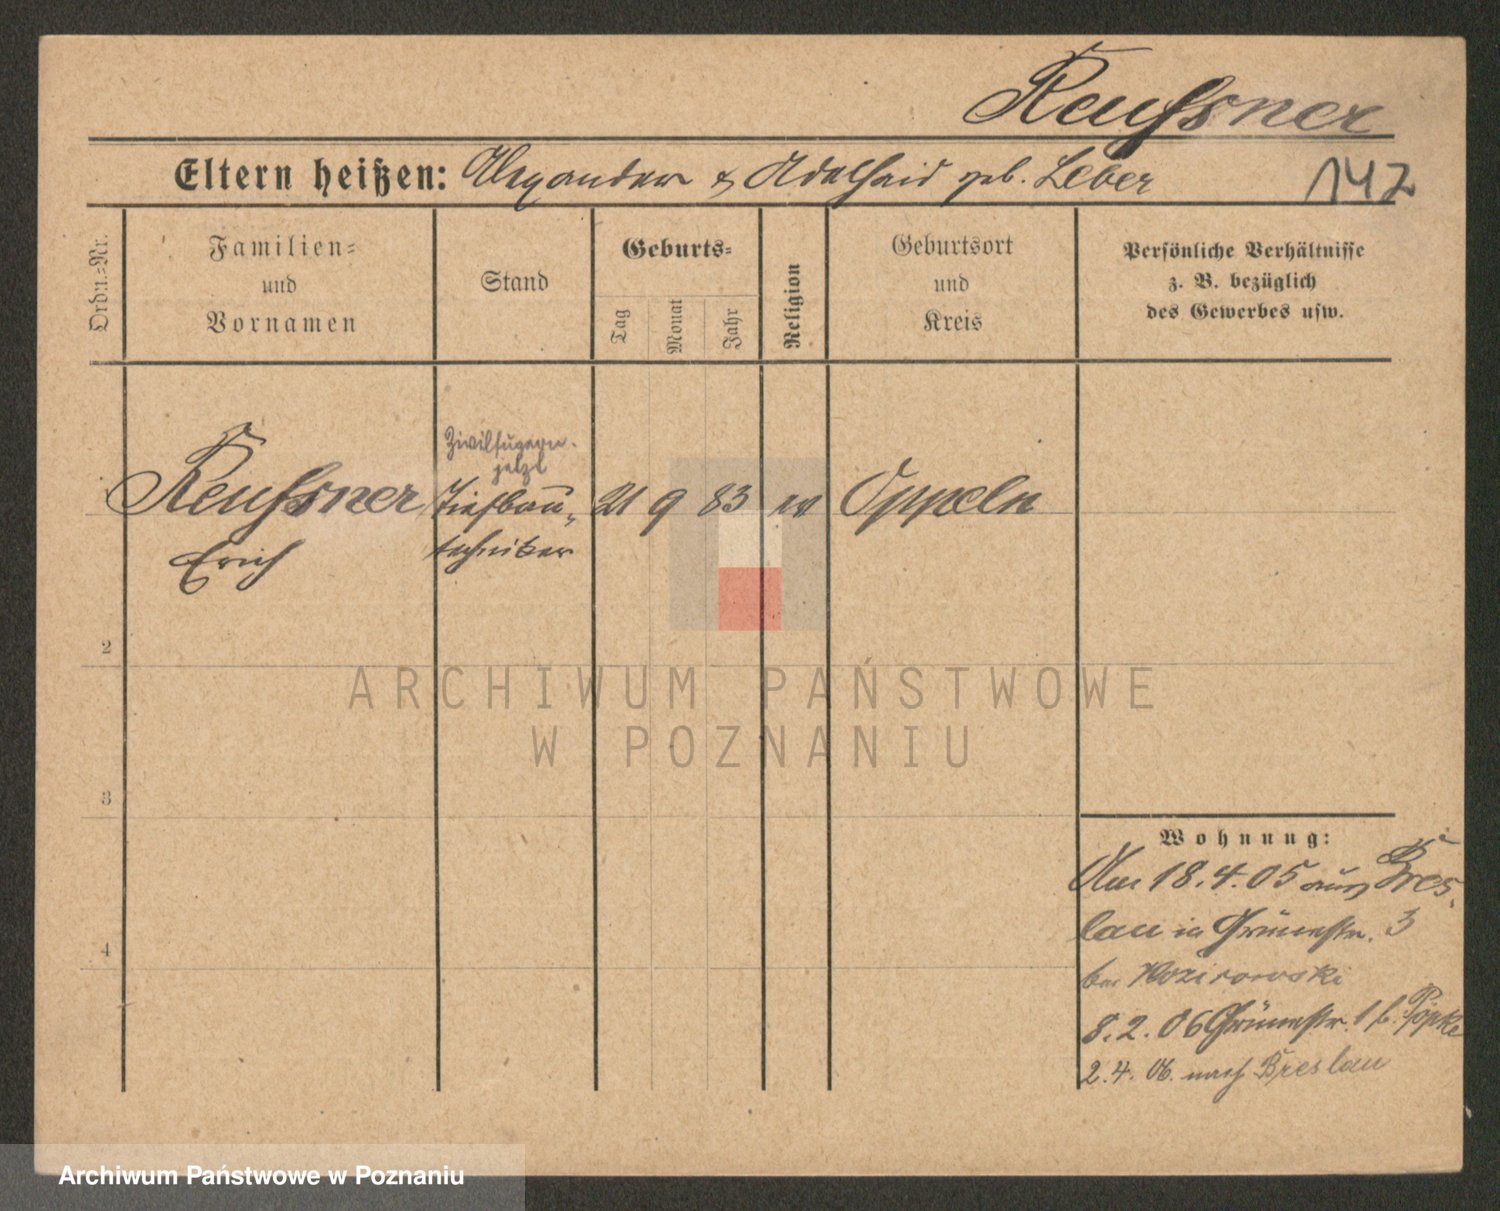 Reußner
Eltern heißen: Alexander & Adelheid geb. Leber
142
Ordn.=Nr.
Familien=
und
Vornamen
Stand
Geburts=
Tag
Monat
Jahr
Religion
Geburtsort
und
Kreis
Persönliche Verhältnisse
z. B. bezüglich
des Gewerbes usw.
jetzt
Reußner Tiefbau- 21 9 83 Oppeln
Erich techniker
2
3
4
Wohnung:
Am 18.4.05 aus Bres-
lau in Grünestr. 3
bei
8.2.06 Grünestr. 1 b. Pöpke
2.4.06. nach Breslau
ARCHIWUM PAŃSTWOWE
W POZNANIU
Archiwum Państwowe w Poznaniu